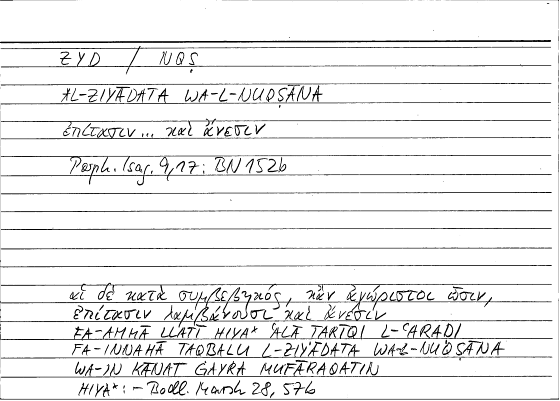 ZYD / NQṢ
*L-ZIYĀDATA WA-L-NUQṢĀNA
ἐπίτασιν... καὶ ἄνεσιν
Porph. Isag. 9,17: BN 152b
αἱ δὲ κατὰ συμβεβηκός, κἂν ἀχώριστοι ὦσιν,
ἐπίτασιν λαμβάνουσι καὶ ἄνεσιν
FA-AMMĀ LLATĪ HIYA* ʿALĀ ṬARĪQI L-ʿARAḌI
FA-INNAHĀ TAQBALU L-ZIYĀDATA WA-L-NUQṢĀNA
WA-IN KĀNAT ĠAYRA MUFĀRAQATIN
HIYA*: – Bodl. Marsh 28, 57b